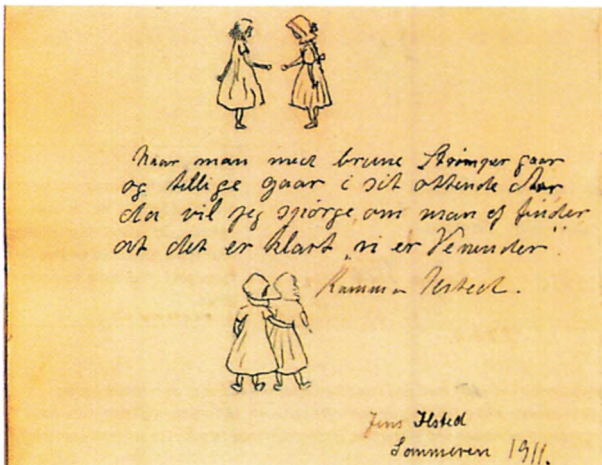 Naar man med brune Strømper gaar
og tillige gaar i sit ottende Aar
da vil jeg spørge, om man ej finder
at det er klart „vi er Veninder".
Kamma Ilsted.
Jens Ilsted
Sommeren 1911.